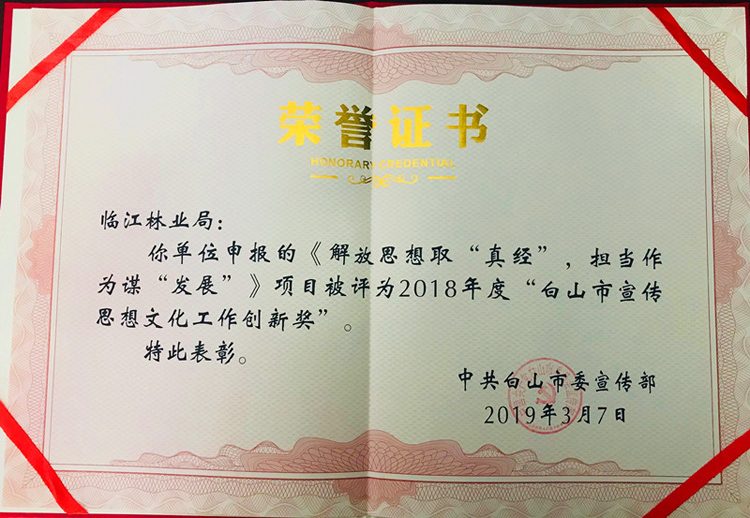 荣誉证书
HONORARY CREDENTIAL
临江林业局：
你单位申报的《解放思想取“真经”，担当作
为谋“发展”》项目被评为2018年度“白山市宣传
思想文化工作创新奖”。
特此表彰。
中共白山市委宣传部
2019年3月7日